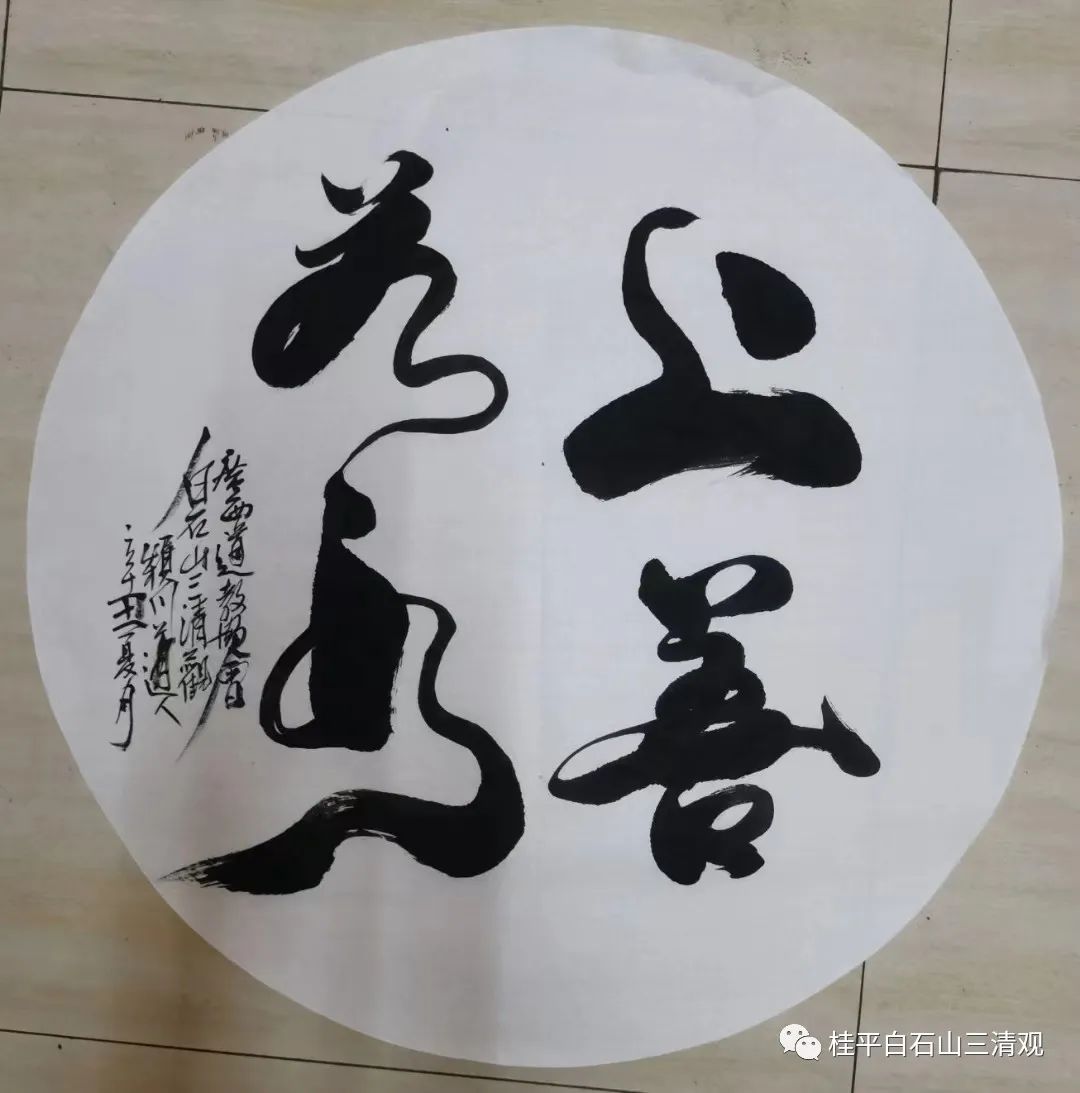 上善
若水
廣西道教協會
白石山三清觀
穎川道人
辛丑夏月
桂平白石山三清观